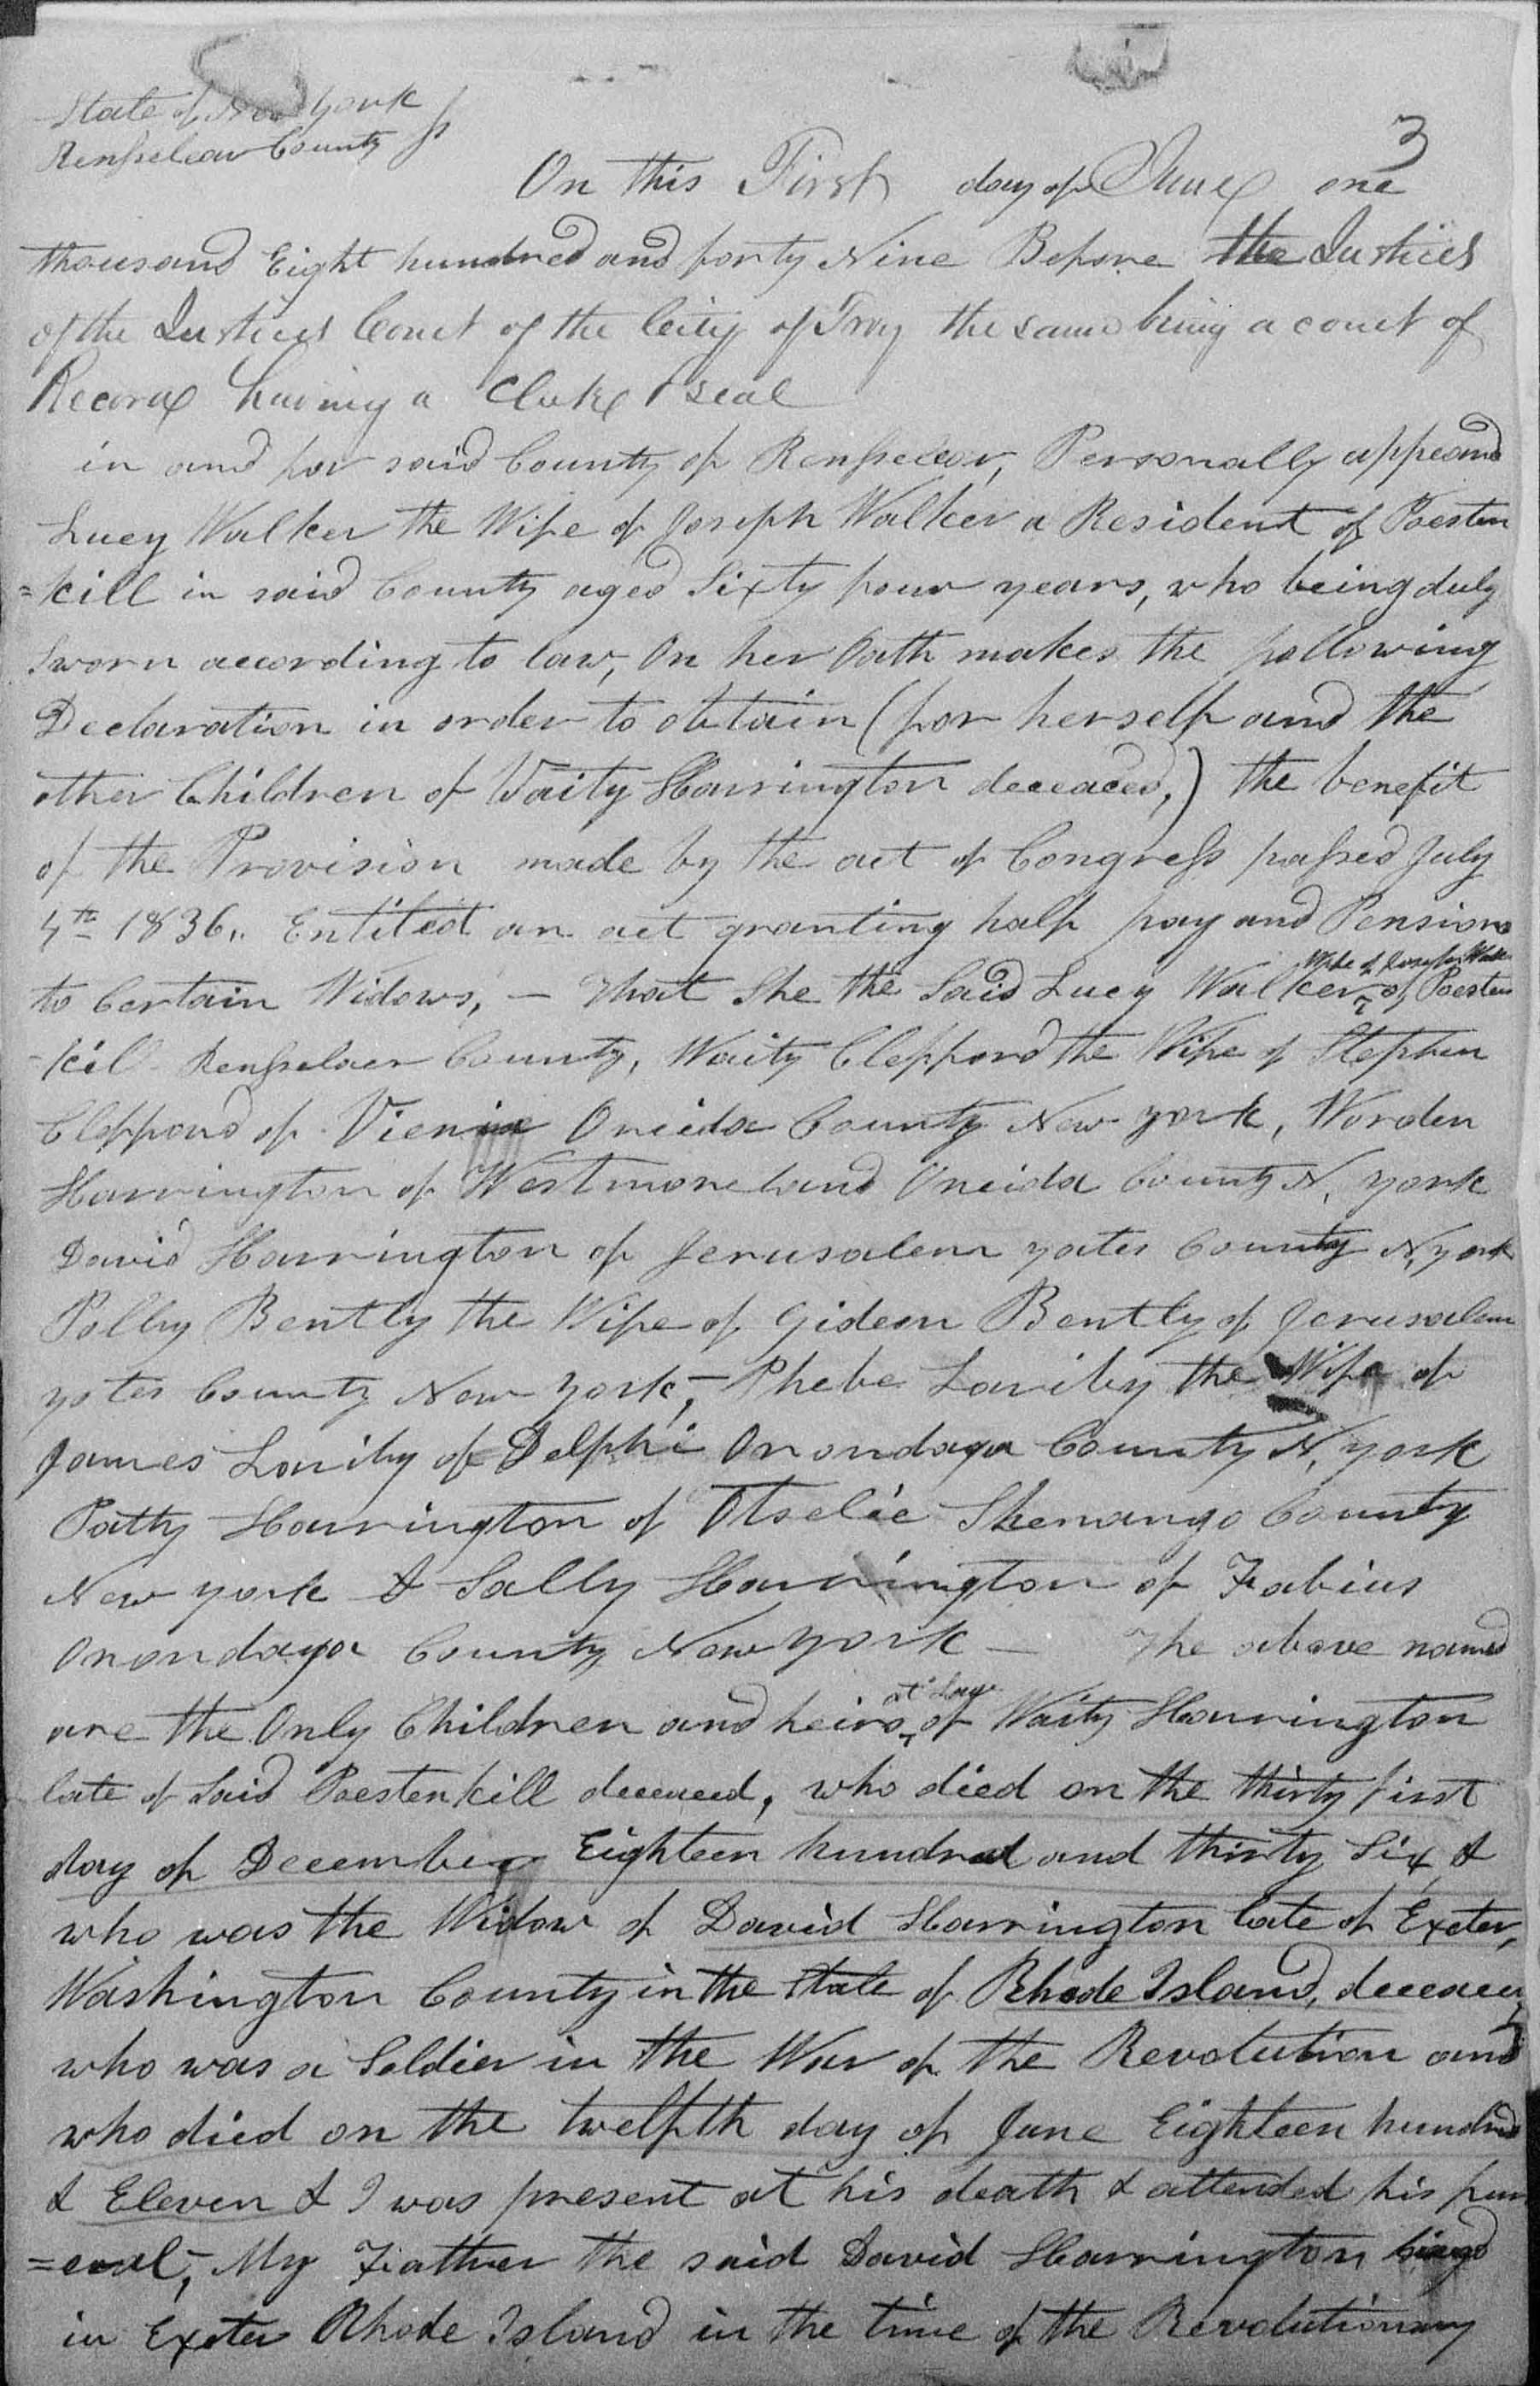 State of New York
Rensselear County } ss
3
On this First day of June one
thousand Eight hundred and forty Nine Before the Justices
of the Justices Court of the City of Troy the same being a court of
Record having a Clerk & seal
in and for said County of Rensselear, Personally appeared
Lucy Walker the Wife of Joseph Walker a Resident of Poesten
=kill in said County aged Sixty four years, who being duly
Sworn according to law, On her Oath makes the following
Declaration in order to obtain (for herself and the
other Children of Waity Harrington deceaced,) the benefit
of the Provision made by the act of Congress passed July
4th 1836,. Entitled an act granting half pay and Pensions
to Certain Widows, — That She the Said Lucy Walker, Wife of Joseph Walker of Poesten
-kill Rensselaer County, Waity Clefford the Wife of Stephen
Clefford of Vienna Oneida County New York, Worden
Harrington of Westmoreland Oneida County N, York
David Harrington of Jerusalem yates County N, York
Polly Bently the Wife of Gideon Bently of Jerusalem
yates County New York, - Phebe the Wife of
James of Delphi Onondaga County N, York
Patty Harrington of Otselic Shenango County
New York & Sally Harrington of Fabius
Onondaga County New York — The above named
are the Only Children and heirs at Law of Waity Harrington
late of Said Poestenkill deceaced, who died on the thirty first
day of December Eighteen hundred and thirty Six, &
who was the Widow of David Harrington late of Exeter,
Washington County in the State of Rhode Island, deceaced
who was a Soldier in the War of the Revolution and
who died on the twelfth day of June Eighteen hundred
& Eleven & I was present at his death & attended his fun
=eral, - My Father the said David Harrington
in Exeter Rhode Island in the time of the Revolutionary